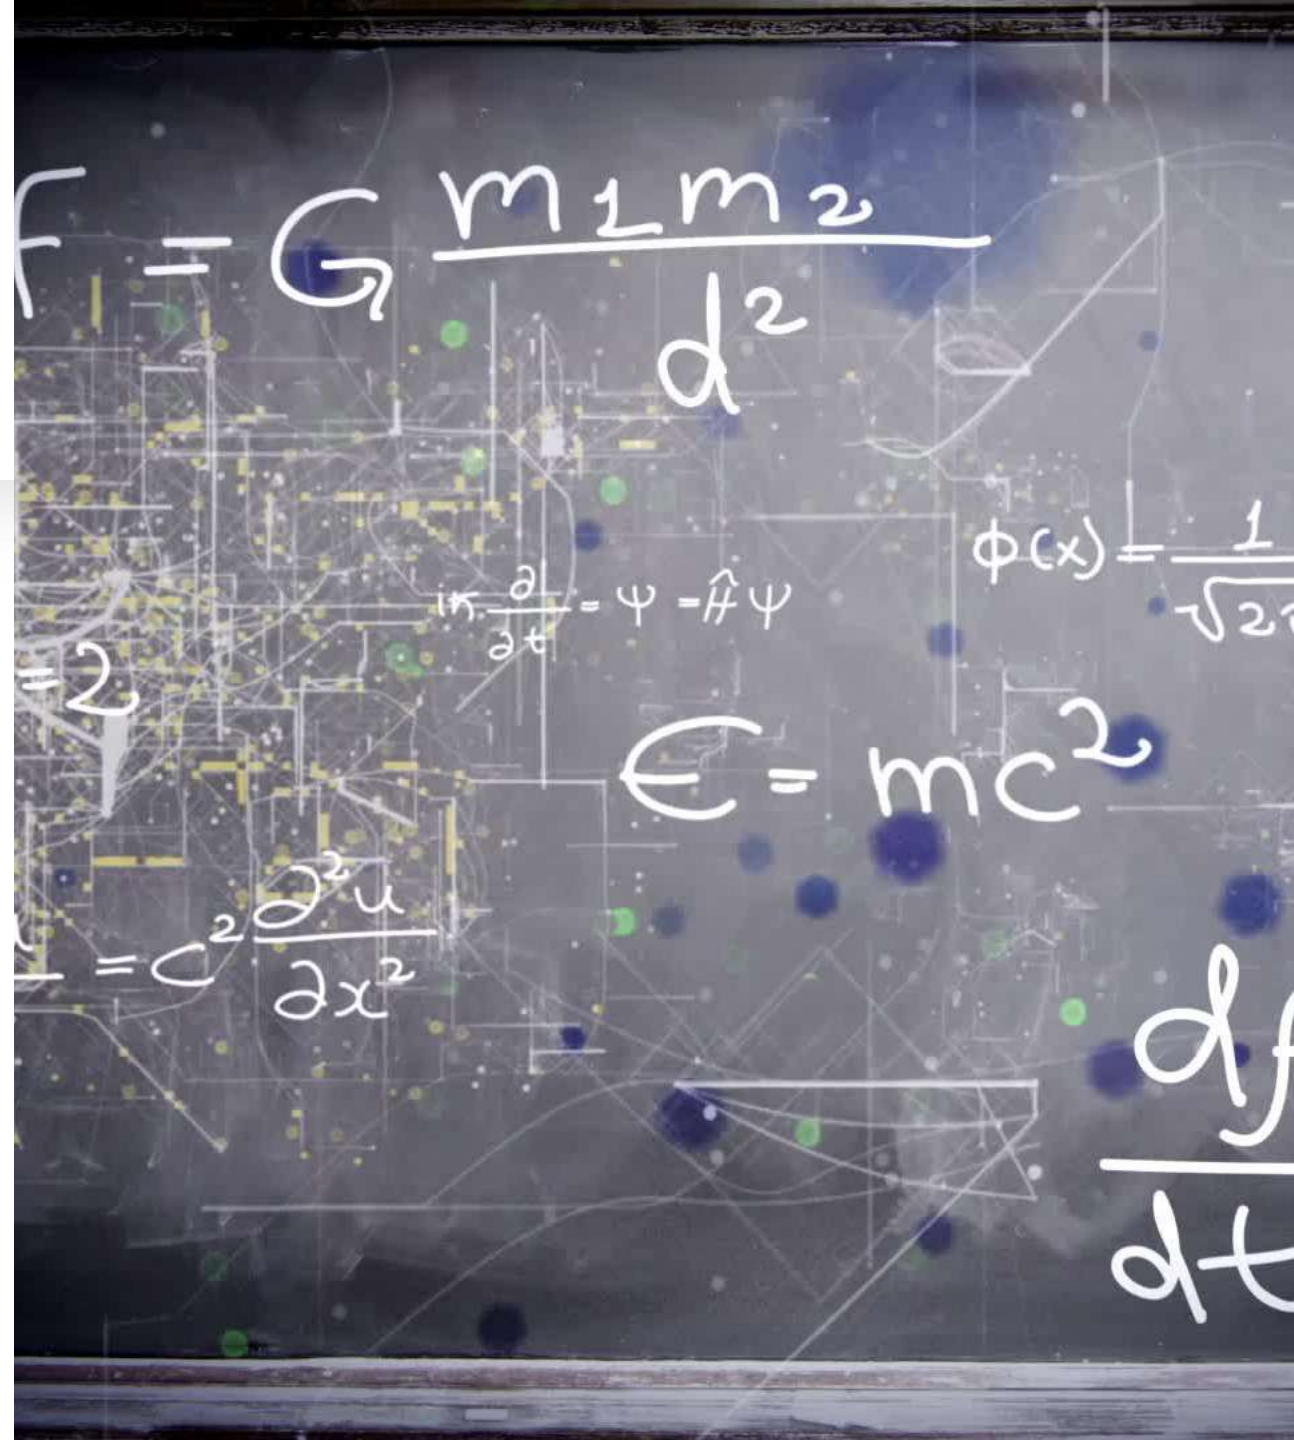 F = G m₁m₂ / d²
φ(x) = 1 / √2
iħ ∂/∂t = Ψ = ĤΨ
=2
E = mc²
= c² ∂²u / ∂x²
df / dt